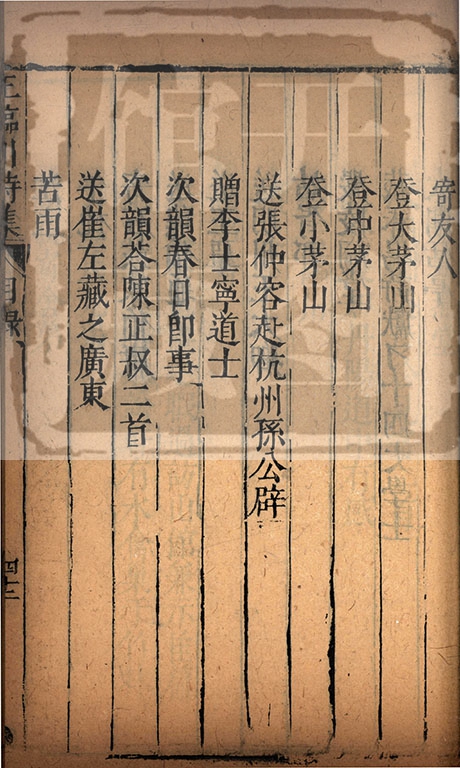 寄友人
登大茅山
登中茅山
登小茅山
送張仲容赴杭州孫公辟
贈李士寧道士
次韻春日即事
次韻荅陳正叔二首
送崔左藏之廣東
苦雨
王臨川詩集 目錄